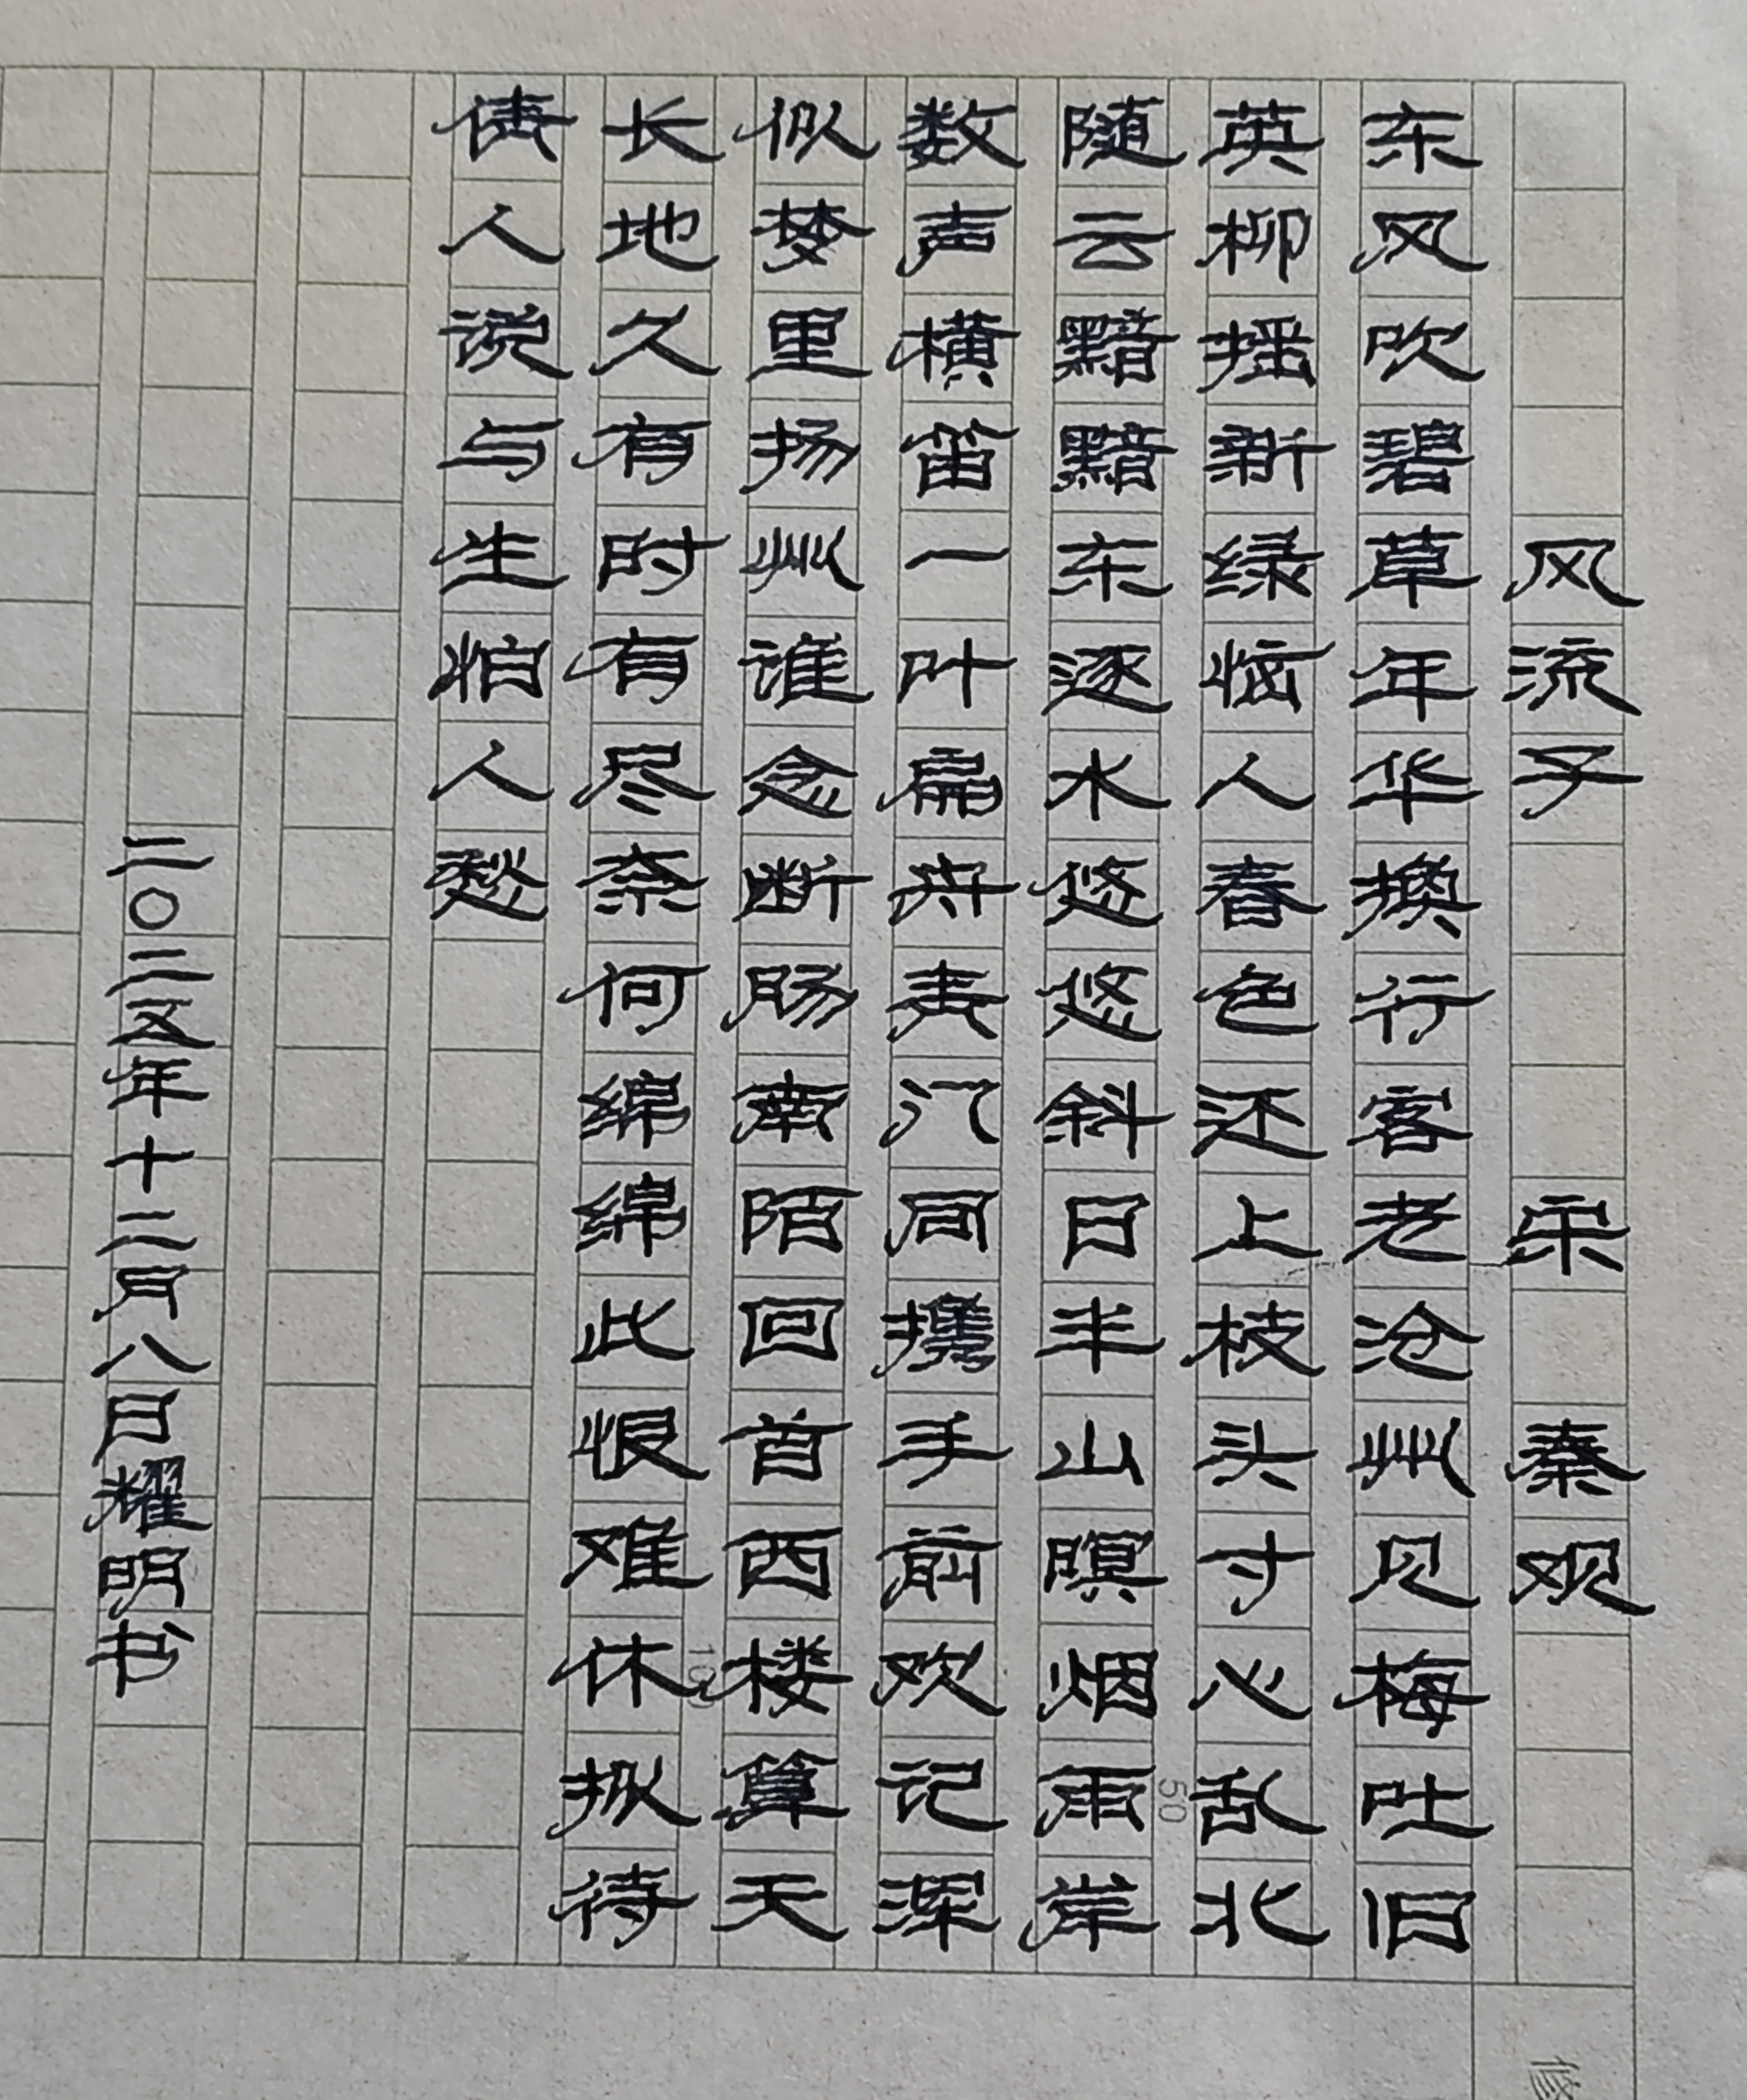 风流子 宋 秦观
东风吹碧草年华换行客老沧州见梅吐旧
英柳摇新绿恼人春色还上枝头寸心乱北
随云黯黯东逐水悠悠斜日半山暝烟雨岸
数声横笛一叶扁舟青门同携手前欢记浑
似梦里扬州谁念断肠南陌回首西楼算天
长地久有时有尽奈何绵绵此恨难休拟待
倩人说与生怕人愁
二〇二五年十二月八日耀明书
50
100